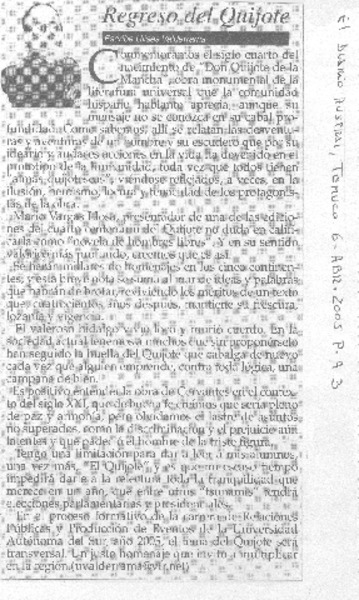 Regreso del Quijote
Conmemoramos el siglo cuarto del
nacimiento de "Don Quijote de la
Mancha", obra monumental de la
literatura universal que la comunidad
hispano hablante aprecia, aunque su
mensaje no se conozca en su cabal pro-
fundidad. Como sabemos, allí se relatan las desventu-
ras y aventuras de un hombre y su escudero que por su
ideario y audaces acciones en la vida ha
de la humanidad, toda vez que todos tienen
"algo quijotesco", viéndose reflejados, a veces, en la
ilusión, heroísmo, locura y tenacidad de los protagonis-
tas de la obra.
Mario Vargas Llosa, presentador de una de las edicio-
nes del cuarto centenario del Quijote no duda en califi-
carla como "novela de hombres libres". Y en su sentido
creemos que es así.
millares de homenajes en los cinco continen-
tes, y esta breve nota se suma al mar de ideas y palabras
que habrán de brotar, reviviendo los méritos de un texto
que cuatrocientos años después, mantiene su frescura,
lozanía y vigencia.
El valeroso hidalgo vivió loco y murió cuerdo. En la
sociedad actual tenemos a muchos que sin proponérselo
han seguido la huella del Quijote que cabalga de nuevo
cada vez que alguien emprende, contra toda lógica, una
campaña de bien.
Es positivo entender la obra de Cervantes en el contex-
to del siglo XXI, que
de paz y armonía, pero
no superados, como la discriminación y el prejuicio aún
latentes y que padeció el hombre de la triste figura.
Tengo una limitación para dar a leer a mis alumnos,
una vez más, "El Quijote", y es que mi escaso tiempo
impedirá darle a la relectura toda la tranquilidad que
merece en un año, que entre otros "tsunamis" tendrá
elecciones parlamentarias y presidenciales.
En el proceso formativo de la carrera de Relaciones
Públicas y Producción de Eventos de la Universidad
Autónoma del Sur, año 2005, el tema del Quijote será
transversal. Un justo homenaje que invito a multiplicar
en la región
El Diario Austral, Temuco 6-Abr-2005 P. A 3